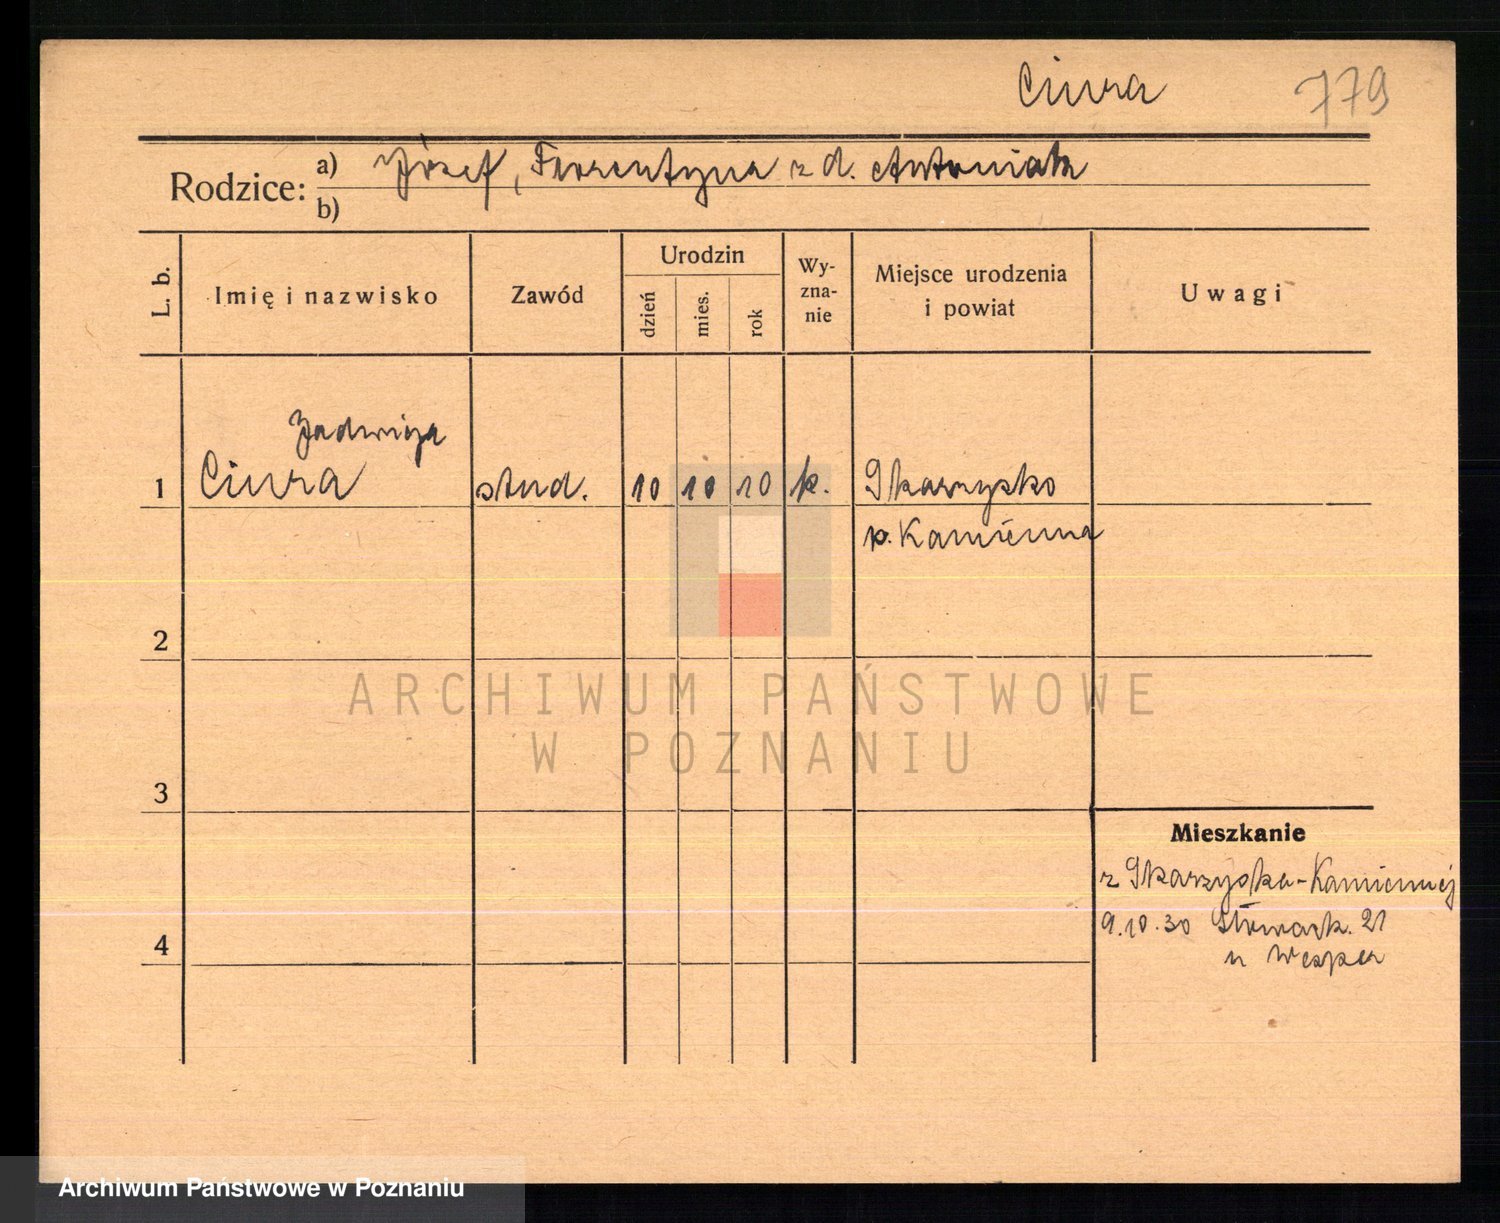 Ciura 779
Rodzice: a) Józef, Florentyna z d. Antoniak
b)
L. b. Imię i nazwisko Zawód Urodzin dzień mies. rok Wy-zna-nie Miejsce urodzenia i powiat Uwagi
Jadwiga
1 Ciura stud. 10 10 10 k. Skarżysko
p. Kamienna
2
ARCHIWUM PAŃSTWOWE
W POZNANIU
3
Mieszkanie
z Skarżyska-Kamiennej
4 9.10.30 21
u
Archiwum Państwowe w Poznaniu